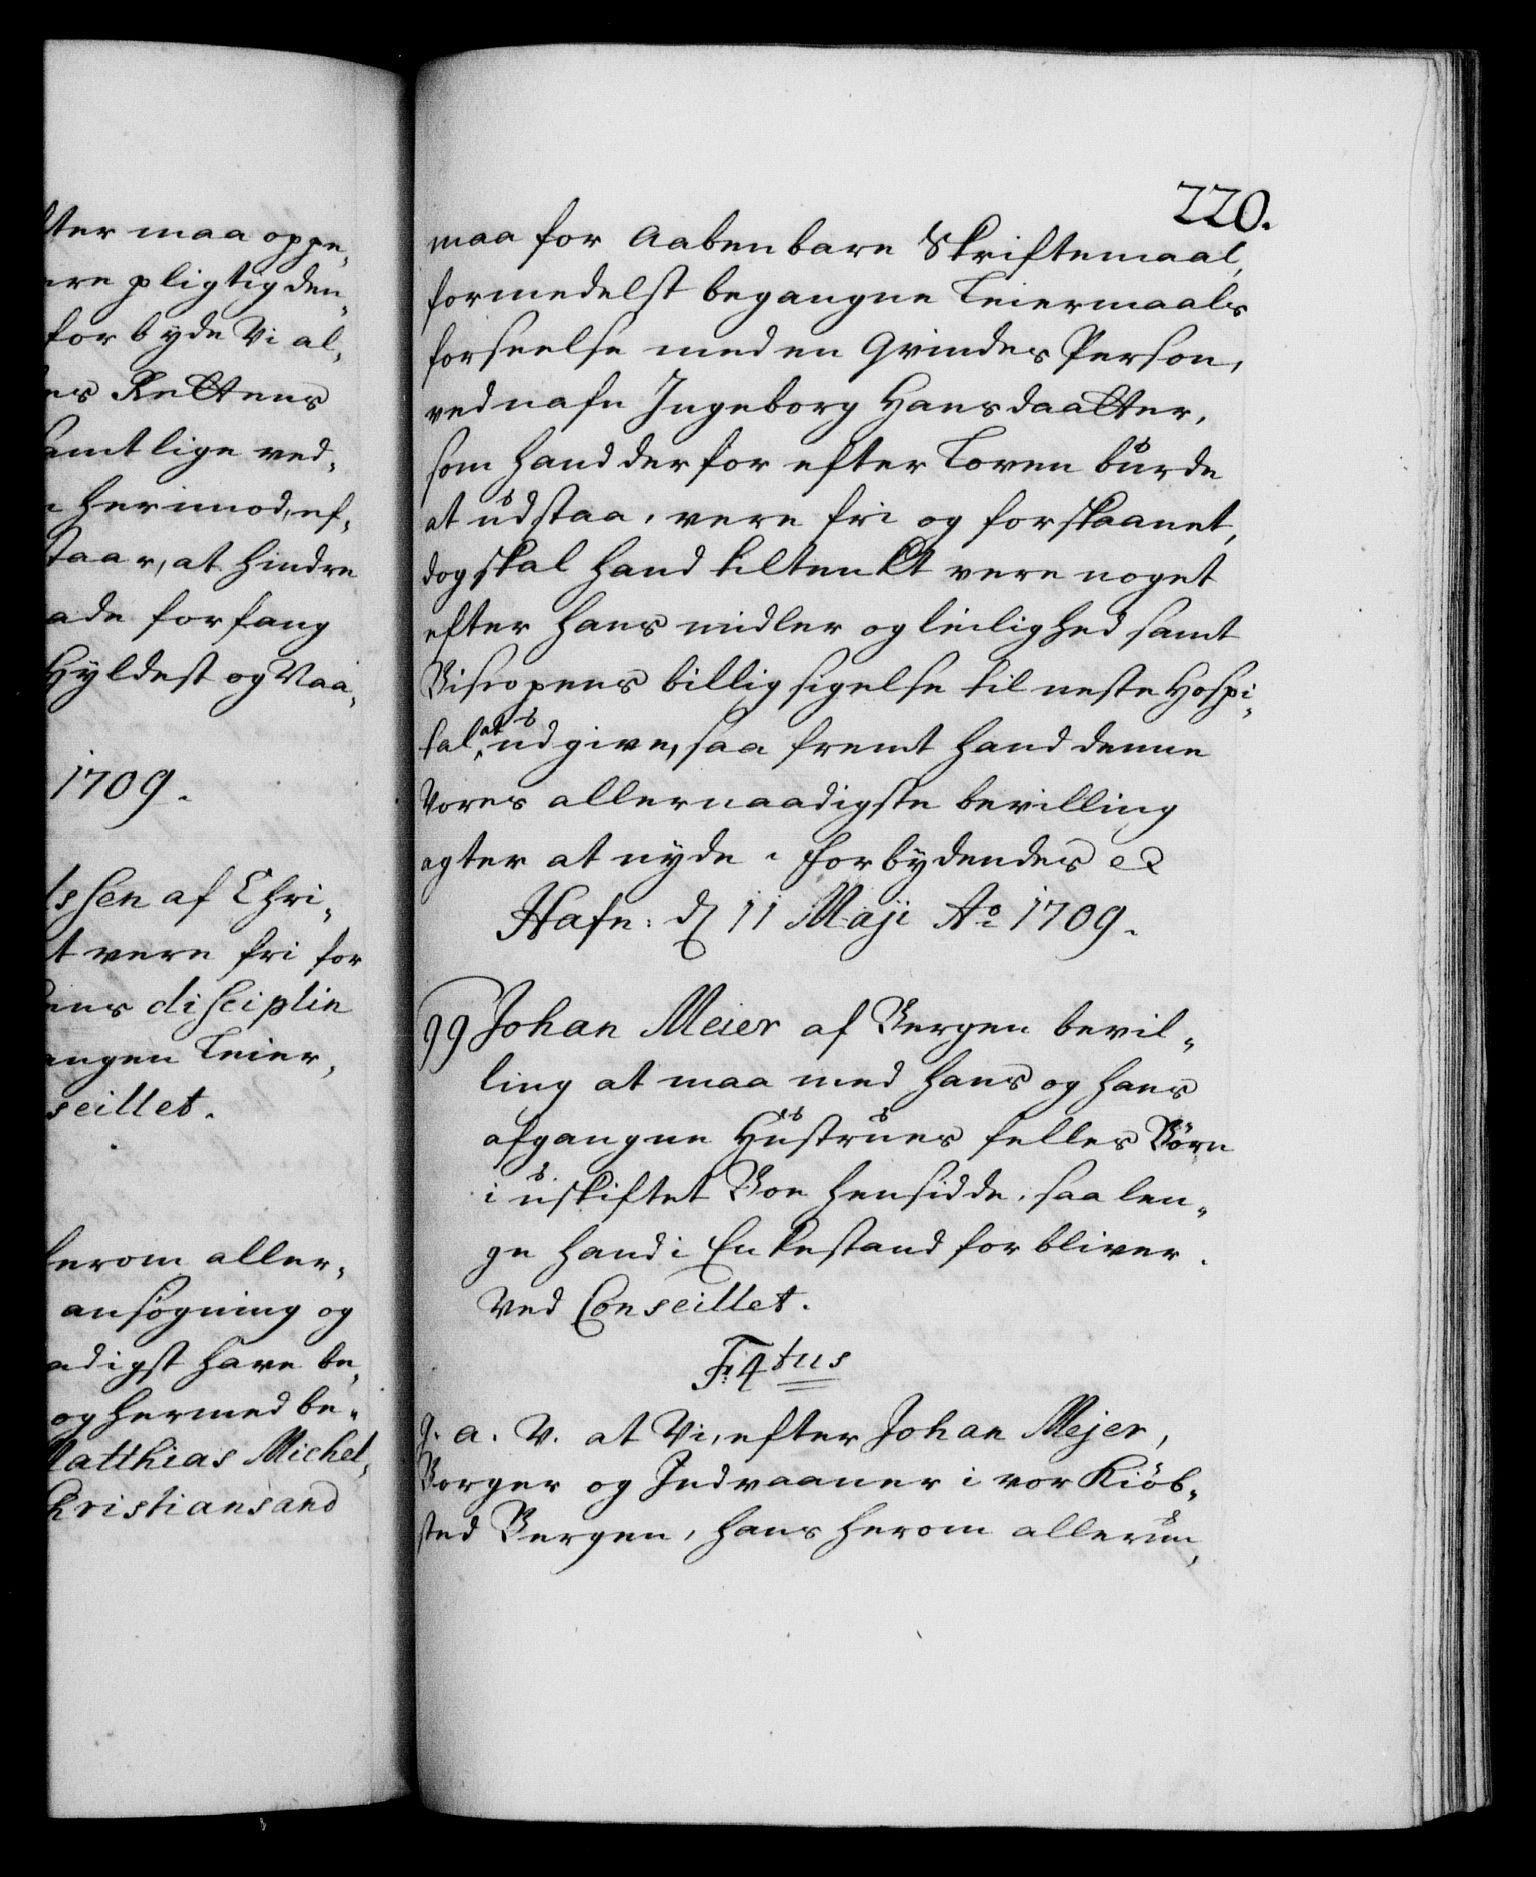 tter maa oppe„
ere pligtig den„
forbyde Vi al„
es Rettens
samtlige ved„
herimod, ef„
staar, at hindre
ade forfang
Hyldest og Vaa„
1709.
lssen af Chri„
t vere fri for
ens disciplin
angen Leier„
seillet.
herom aller„
ansøgning og
adigst have be„
og hermed be„
Matthias Michel„
Christiansand
220.
maa for aabenbare Skriftemaal,
formedelst begangne Leiermaals
forseelse med en Qvindes Person,
ved nafn Ingeborg Hansdaatter,
som hand derfor efter Loven burde
at udstaa, vere fri og forskaanet,
dog skal hand tiltenkt vere noget
efter hans midler og leilighed samt
Bispens billig sigelse til neste Hospi„
tal at udgive, saa fremt hand denne
Vores allernaadigste bevilling
agter at nyde. Forbydendes &
Hafn: d 11 Maji Ao 1709.
99 Johan Meier af Bergen bevil„
ling at maa med hans og hans
afgangne Hustrues felles Børn
i uskiftet Boe hensidde, saa len„
ge hand i Enkestand forbliver.
Ved Conseillet.
F: 4tus
G. a. V. at Vi, efter Johan Mejer,
Borger og Indvaaner i vor Kiøb„
sted Bergen, hans herom allerun„